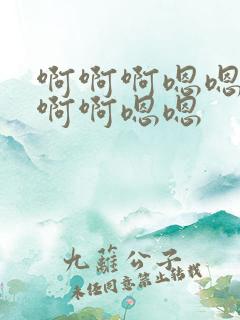 啊啊啊嗯嗯
啊啊嗯嗯
九蘿公子
未经同意禁止转载